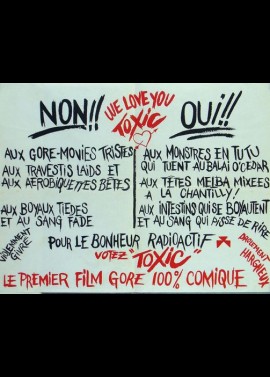 NON!!
WE LOVE YOU
TOXIC
OUI!!
AUX GORE-MOVIES TRISTES
AUX TRAVESTIS LAIDS ET
AUX AEROBIQUETTES BÊTES
AUX BOYAUX TIEDES
ET AU SANG FADE
AUX MONSTRES EN TUTU
QUI TUENT AU BALAI O'CEDAR
AUX TÊTES MELBA MIXEES
A LA CHANTILLY!
AUX INTESTINS QUI SE BOYAUTENT
ET AU SANG QUI PISSE DE RIRE
VIOLEMMENT
GIVRÉ
POUR LE BONHEUR RADIOACTIF
VOTEZ "TOXIC"
DROLEMENT
HARGNEUX
LE PREMIER FILM GORE 100% COMIQUE